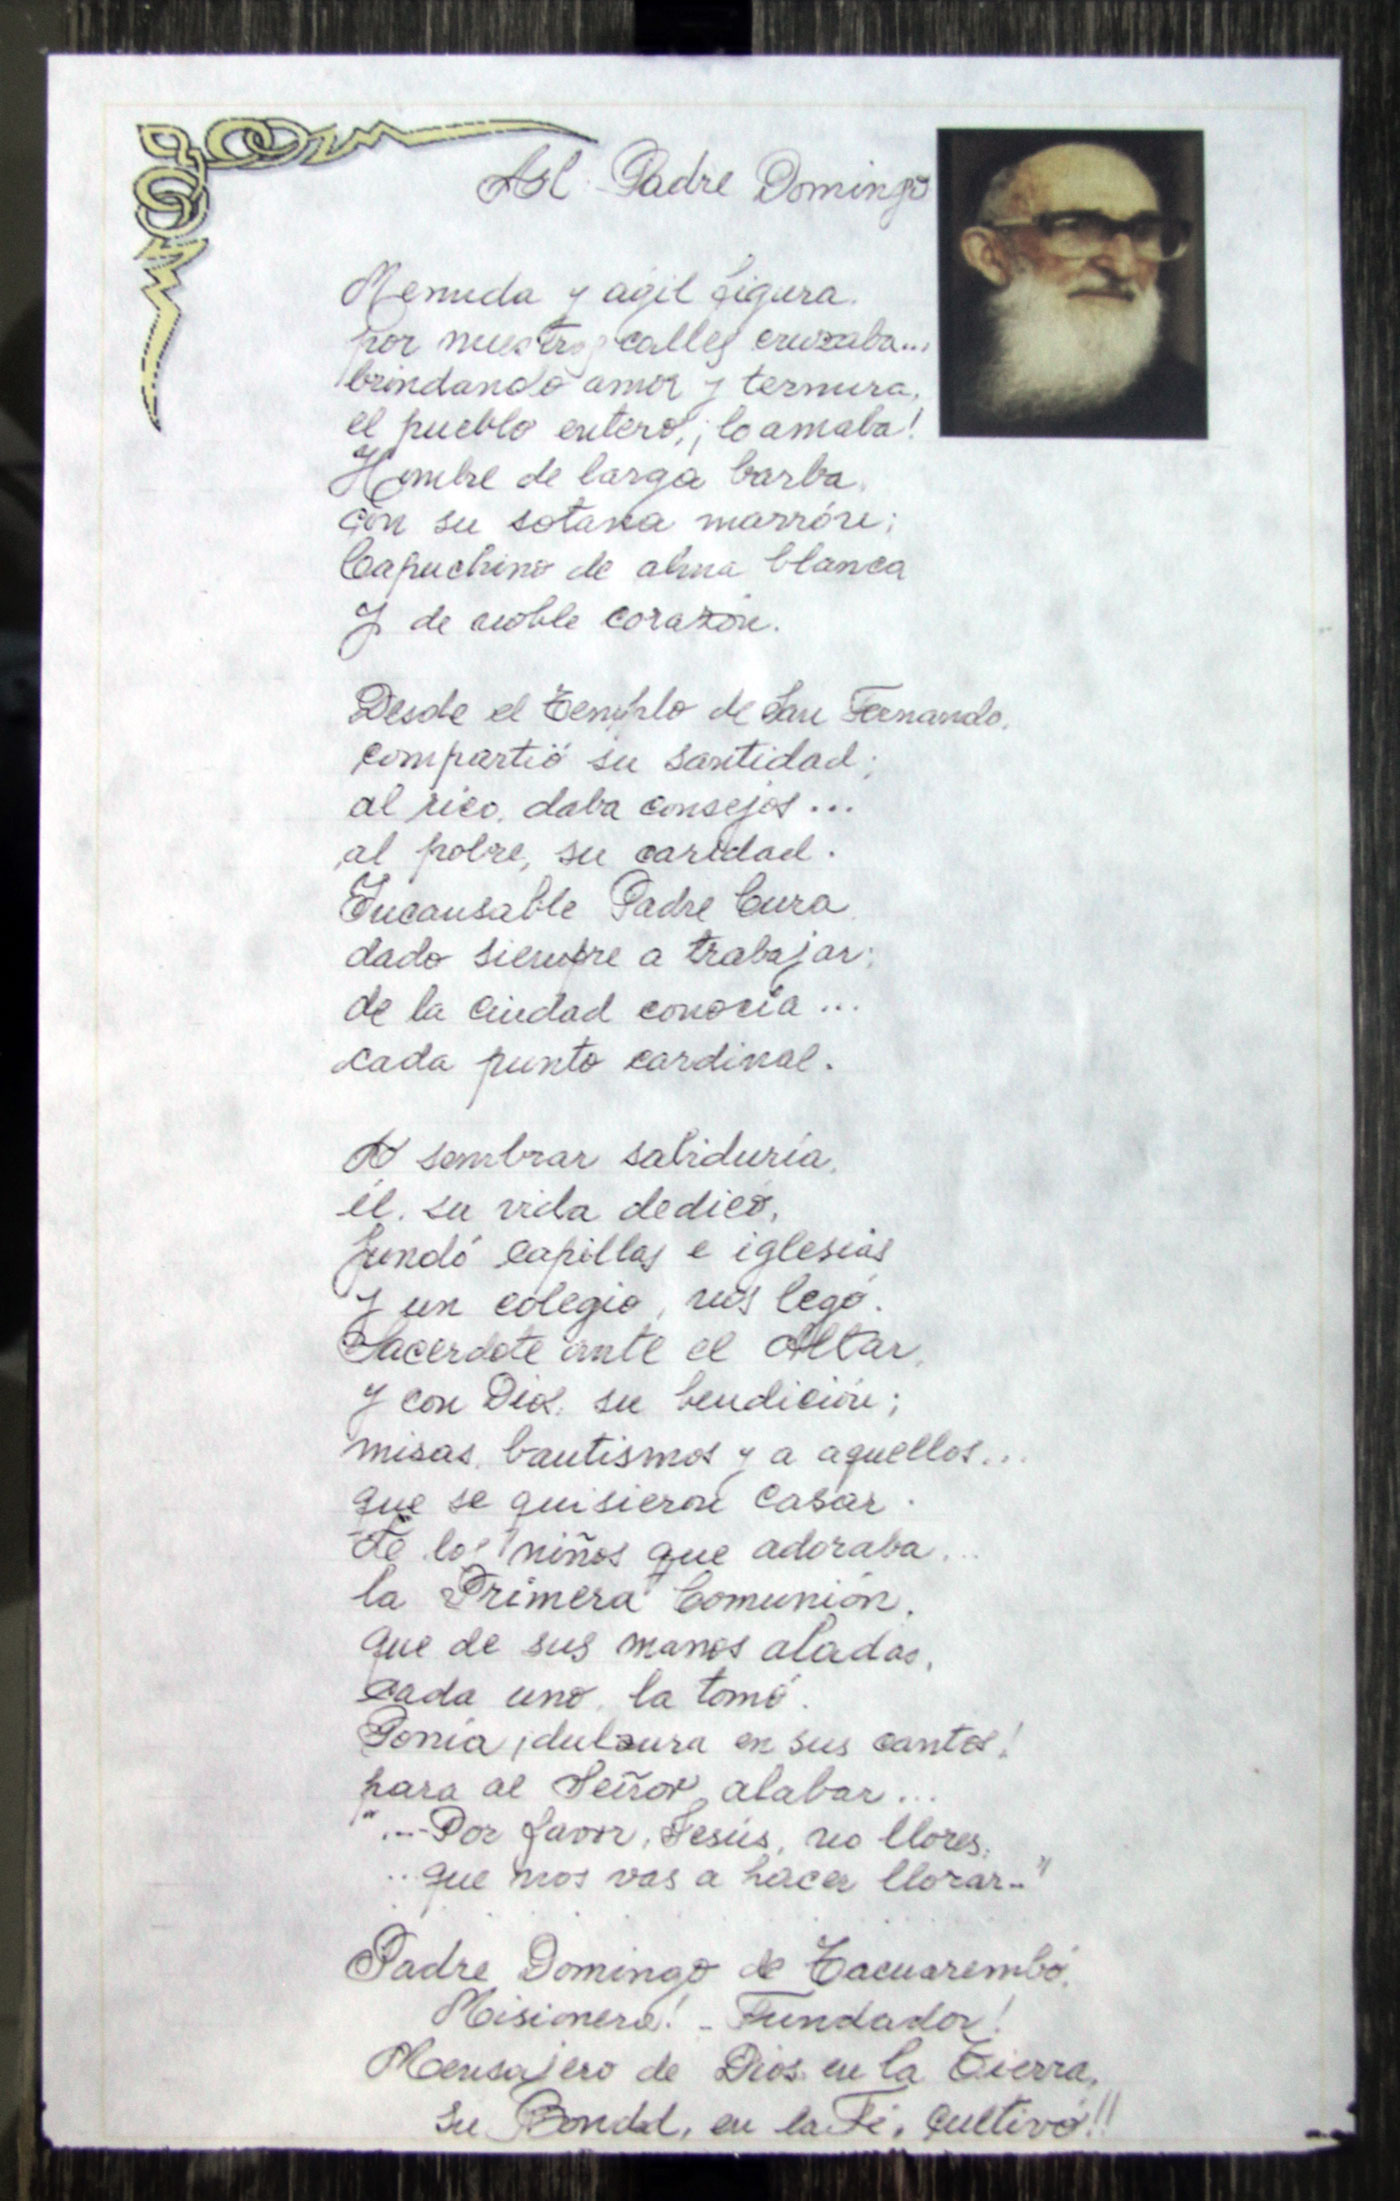 Al Padre Domingo
Menuda y ágil figura.
por nuestras calles cruzaba...
brindando amor y ternura,
el pueblo entero, ¡lo amaba!
Hombre de larga barba,
con su sotana marrón;
Capuchino de alma blanca
y de noble corazón.
Desde el Templo de San Fernando,
compartió su santidad;
al rico, daba consejos...
al pobre, su caridad.
Incansable Padre Cura
dado siempre a trabajar;
de la ciudad conocía...
cada punto cardinal.
A sembrar sabiduría,
él, su vida dedicó,
fundó capillas e iglesias
y un colegio, nos legó.
Sacerdote ante el Altar,
y con Dios, su bendición;
misas, bautismos y a aquellos...
que se quisieron casar.
De los niños que adoraba...
la Primera Comunión,
que de sus manos aladas,
cada uno, la tomó.
Ponía ¡dulzura en sus cantos!
para al Señor, alabar...
"...Por favor, Jesús, no llores,
...que nos vas a hacer llorar..."
Padre Domingo de Tacuarembó,
Misionero! - Fundador!
Mensajero de Dios en la Tierra,
su Bondad, en la Fé, cultivó!!